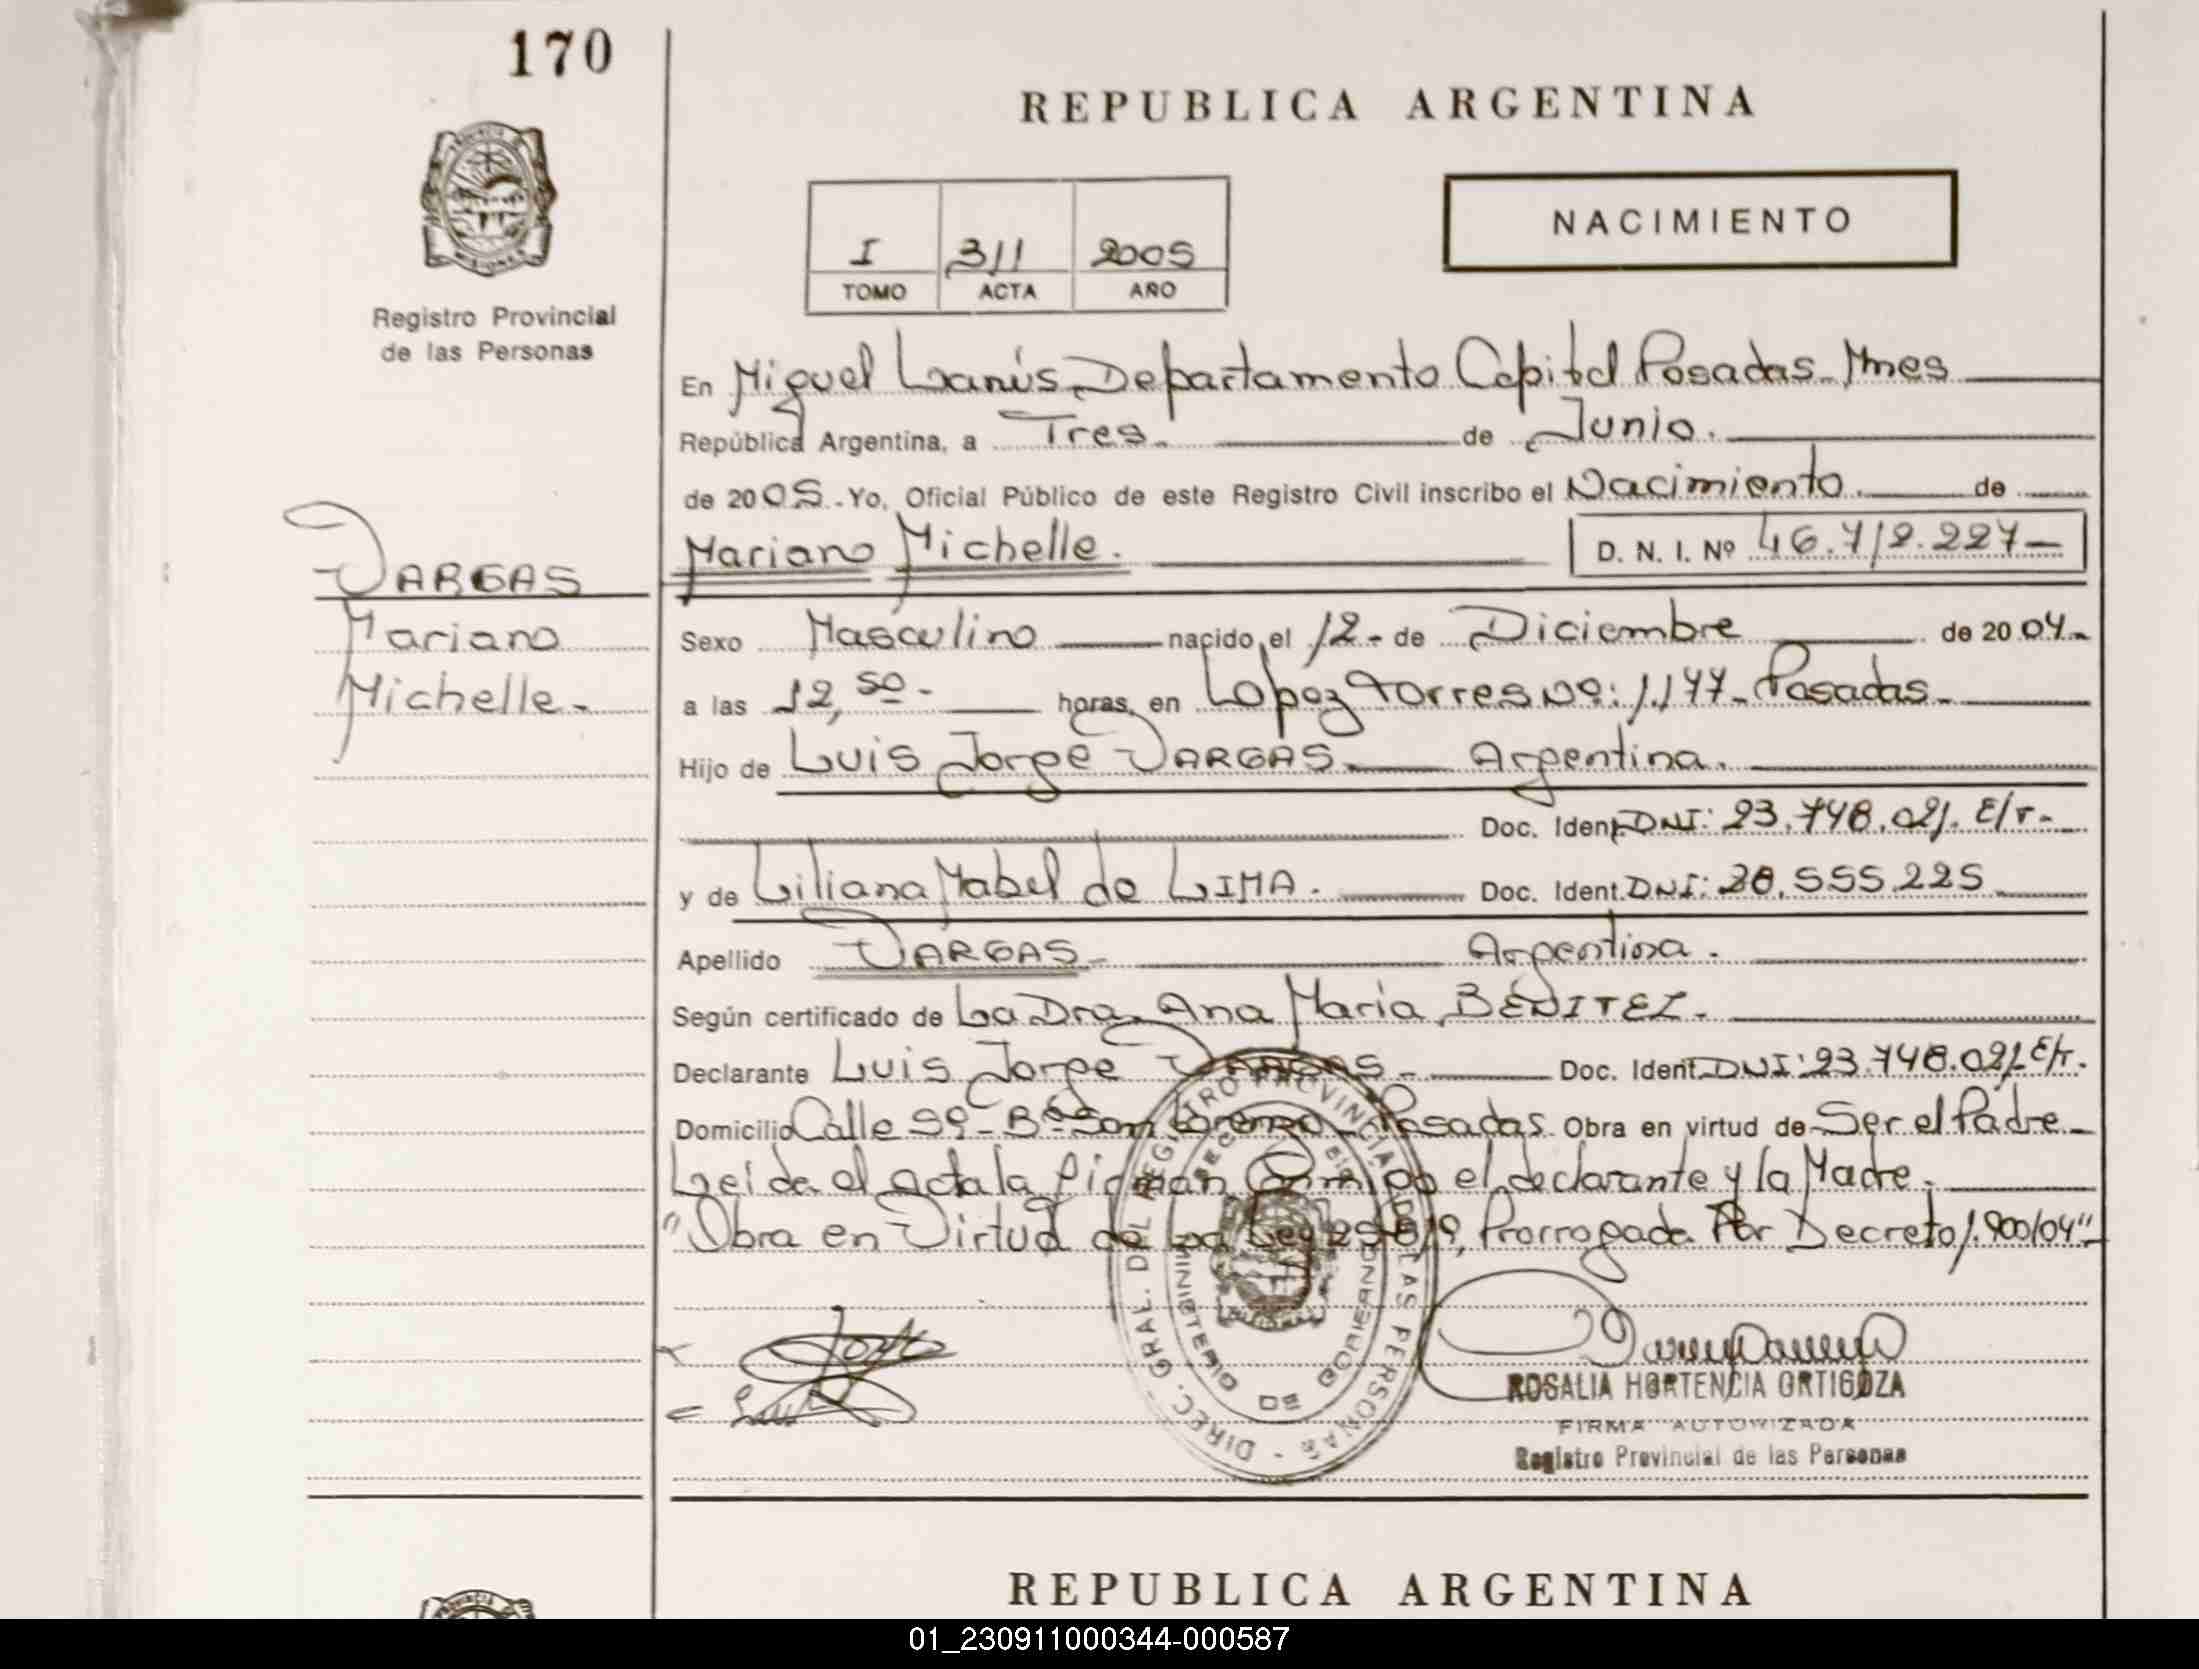 170
REPUBLICA ARGENTINA
MISIONES
Registro Provincial
de las Personas
I 311 2005
TOMO ACTA AÑO
NACIMIENTO
En Miguel Lanús Departamento Capital Posadas Mnes
República Argentina, a Tres. de Junio.
de 2005. Yo, Oficial Público de este Registro Civil inscribo el Nacimiento. de
Mariano Michelle. D. N. I. Nº 46.712.227-
VARGAS
Mariano
Michelle.-
Sexo Masculino nacido el 12- de Diciembre de 2004.
a las 12,50- horas, en Lopez Torres Nº: 1.177- Posadas.
Hijo de Luis Jorge VARGAS. Argentina.
Doc. Ident. DNI: 23.748.021. E/r.-
y de Liliana Mabel de LIMA. Doc. Ident. DNI: 28.555.225
Apellido VARGAS- Argentina.
Según certificado de La Dra. Ana Maria BENITEZ.
Declarante Luis Jorge VARGAS- Doc. Ident. DNI: 23.748.021 E/r.
Domicilio Calle 99- Bº San Lorenzo- Posadas Obra en virtud de Ser el Padre
Leida el acta la firman Conmigo el declarante y la Madre.
"Obra en Virtud de La Ley 25.819, Prorrogada Por Decreto 1.900/04"
DIREC. GRAL. DEL REGISTRO PROVINCIAL DE LAS PERSONAS
MINISTERIO DE GOBIERNO
ROSALIA HORTENCIA ORTIGOZA
FIRMA AUTORIZADA
Registro Provincial de las Personas
REPUBLICA ARGENTINA
01_230911000344-000587